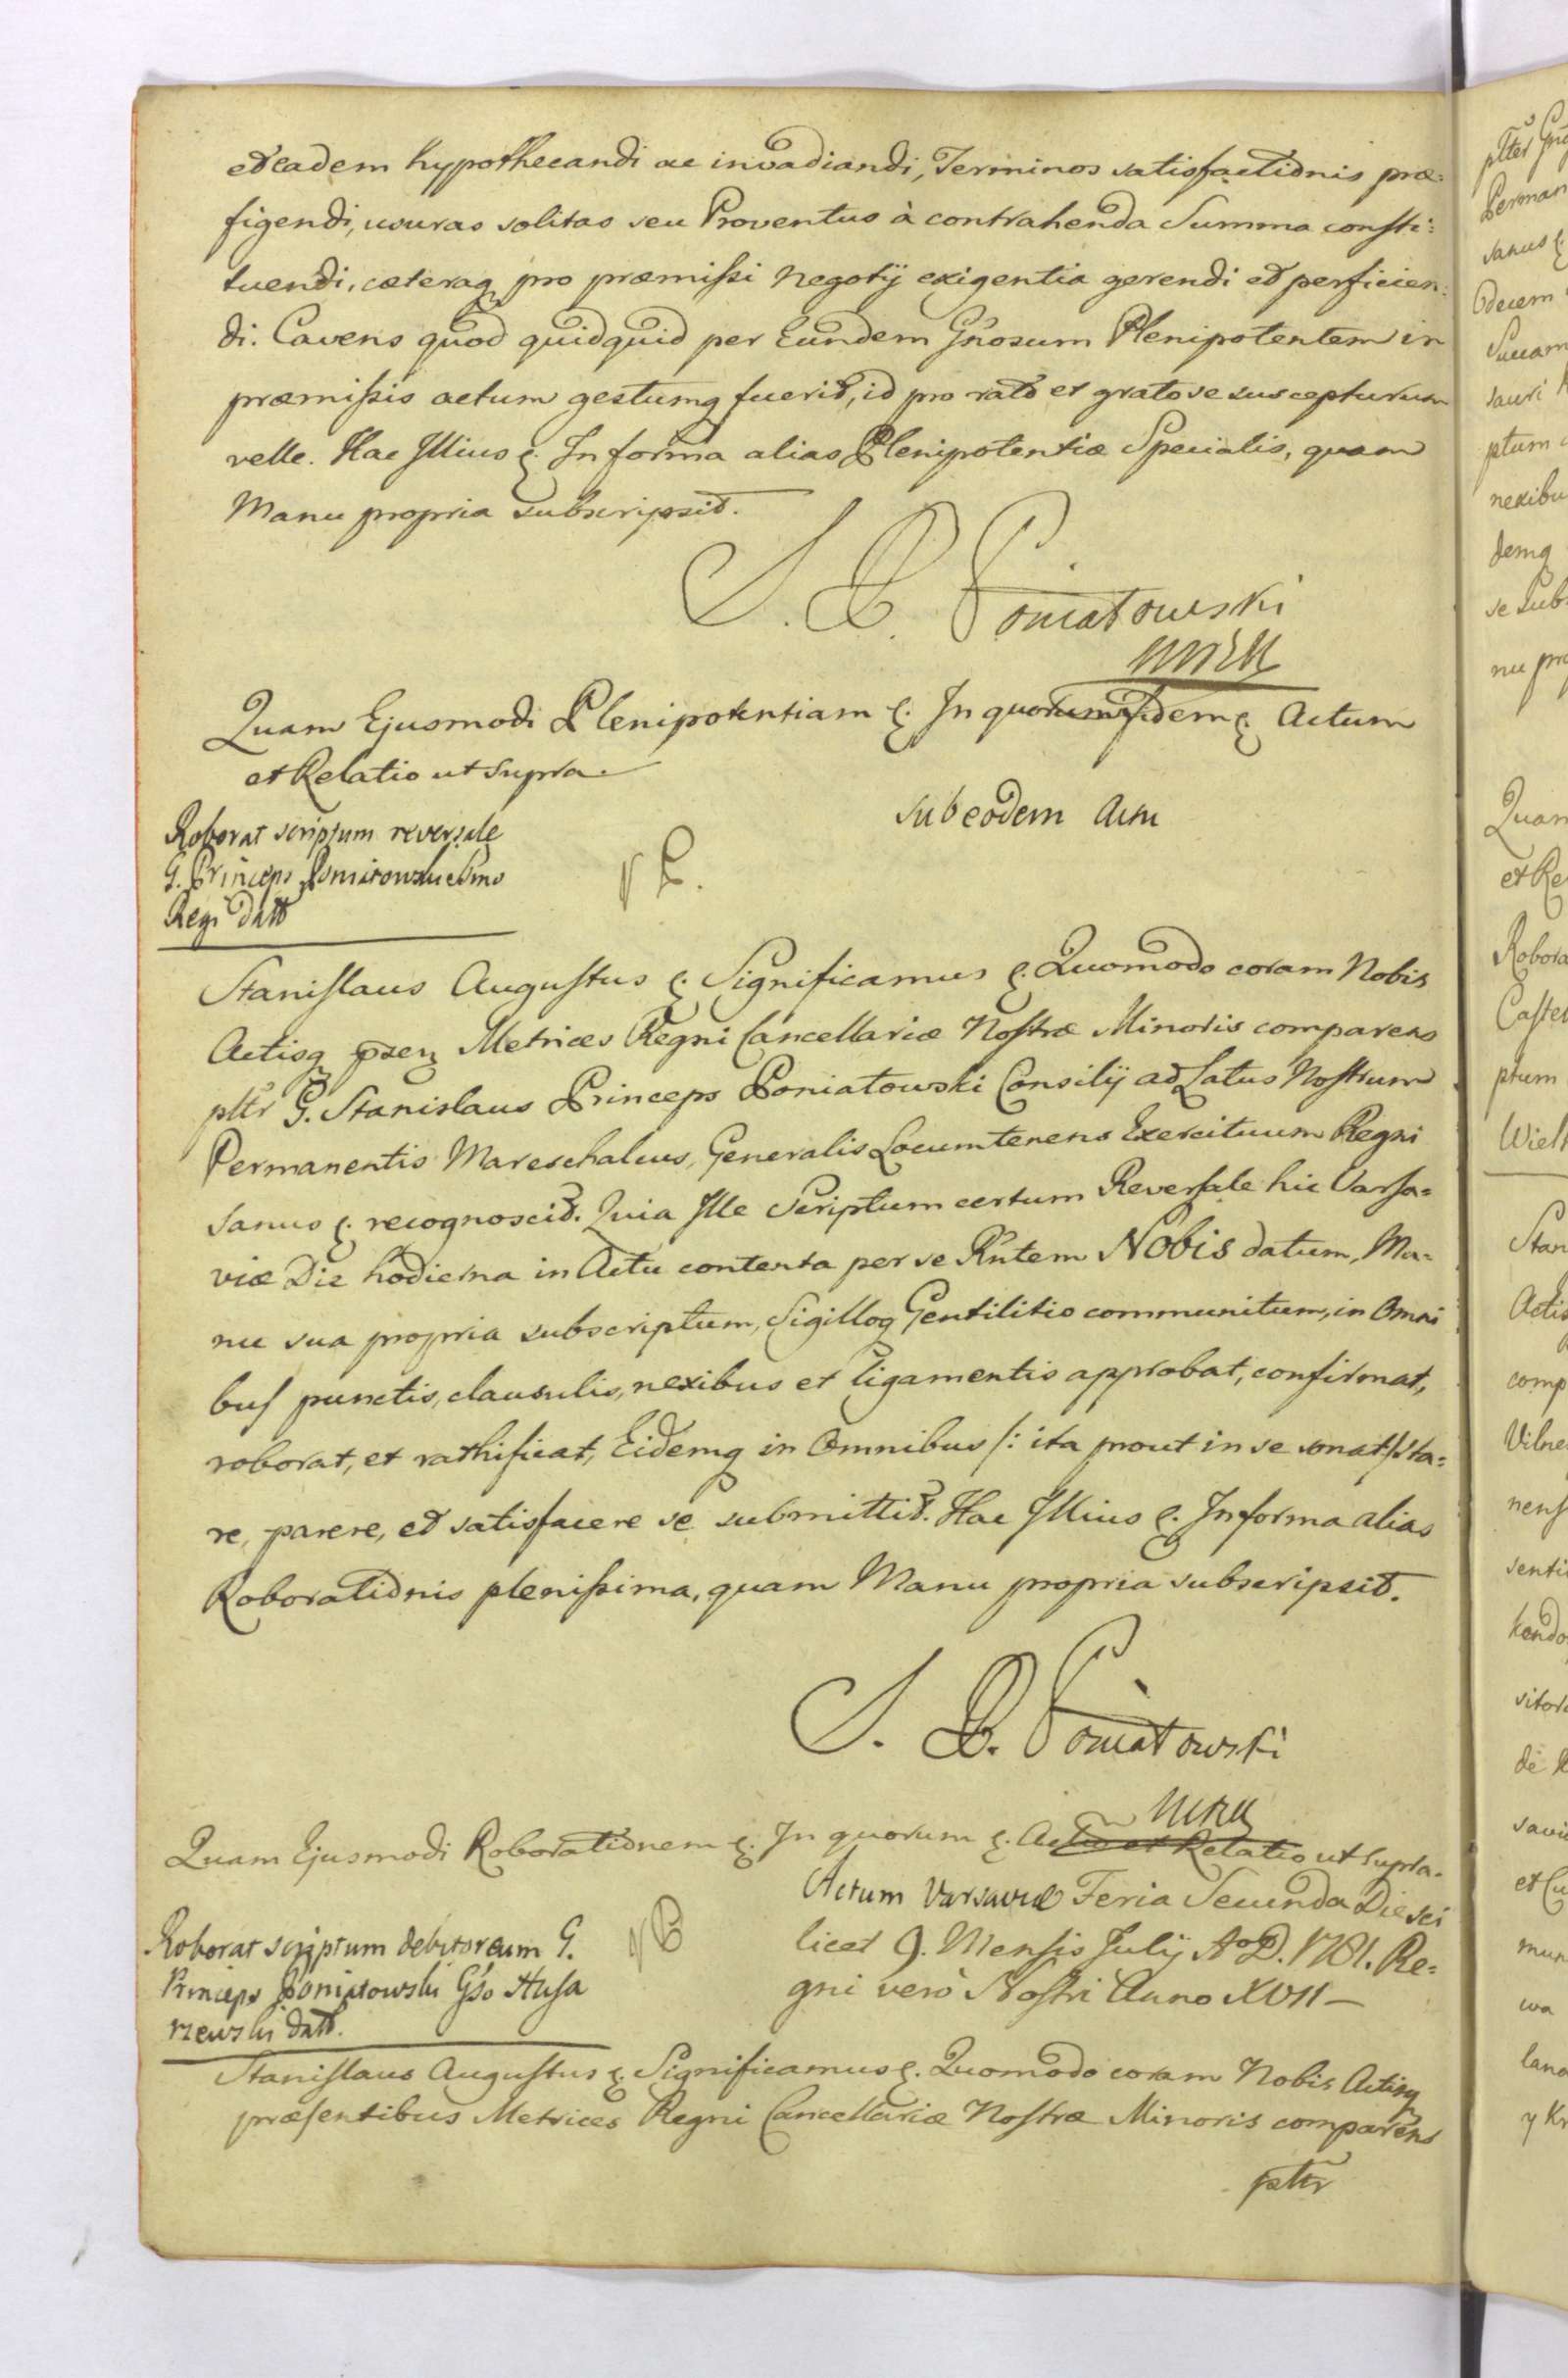 et eadem hypothecandi ac invadiandi, Terminos satisfactionis præ:
figendi, usuras solitas seu Proventus à contrahenda Summa consti:
tuendi, cæteraq pro præmissi Negotij exigentia gerendi et perficien:
di. Cavens quod quidquid per Eundem Gnosum Plenipotentem in
præmissis actum gestumq fuerit, id pro rato et grato se suscepturum
velle. Hac Illius &. In forma alias Plenipotentiæ Specialis, quam
Manu propria subscripsit.
S. P. Poniatowski
Quam Ejusmodi Plenipotentiam &. In quorum fidem &. Actum
et Relatio ut supra.
sub eodem Actu
Roborat scriptum reversale
G. Princeps Poniatowski Smo
Regi datt
Stanislaus Augustus &. Significamus &. Quomodo coram Nobis
Actisq præn Metrices Regni Cancellariæ Nostræ Minoris comparens
pltr G. Stanislaus Princeps Poniatowski Consilij ad Latus Nostrum
Permanentis Mareschalcus, Generalis Locumtenens Exercituum Regni
sanus &. recognoscit. Quia Ille Scriptum certum Reversale hic Varsa=
viæ Die hodierna in Actu contenta per se Rntem Nobis datum, Ma=
nu sua propria subscriptum, Sigilloq Gentilitio communitum, in Omni
bus punctis, clausulis, nexibus et ligamentis approbat, confirmat,
roborat, et rathificat, Eidemq in Omnibus /: ita prout in se sonat :/ sta=
re, parere, et satisfacere se submittit. Hac Illius &. In forma alias
Roborationis plenissima, quam Manu propria subscripsit.
S. P. Poniatowski
Quam Ejusmodi Roborationem &. In quorum &. Actio et Relatio ut supra.
Actum Varsaviæ Feria Secunda Die sci
licet 9. Mensis Julij A°D. 1781. Re=
gni verò Nostri Anno XVII —
Roborat scriptum debitoreum G.
Princeps Poniatowski Gso Husa
rzewski datt.
Stanislaus Augustus &. Significamus &. Quomodo coram Nobis Actisq
præsentibus Metrices Regni Cancellariæ Nostræ Minoris comparens
pltr